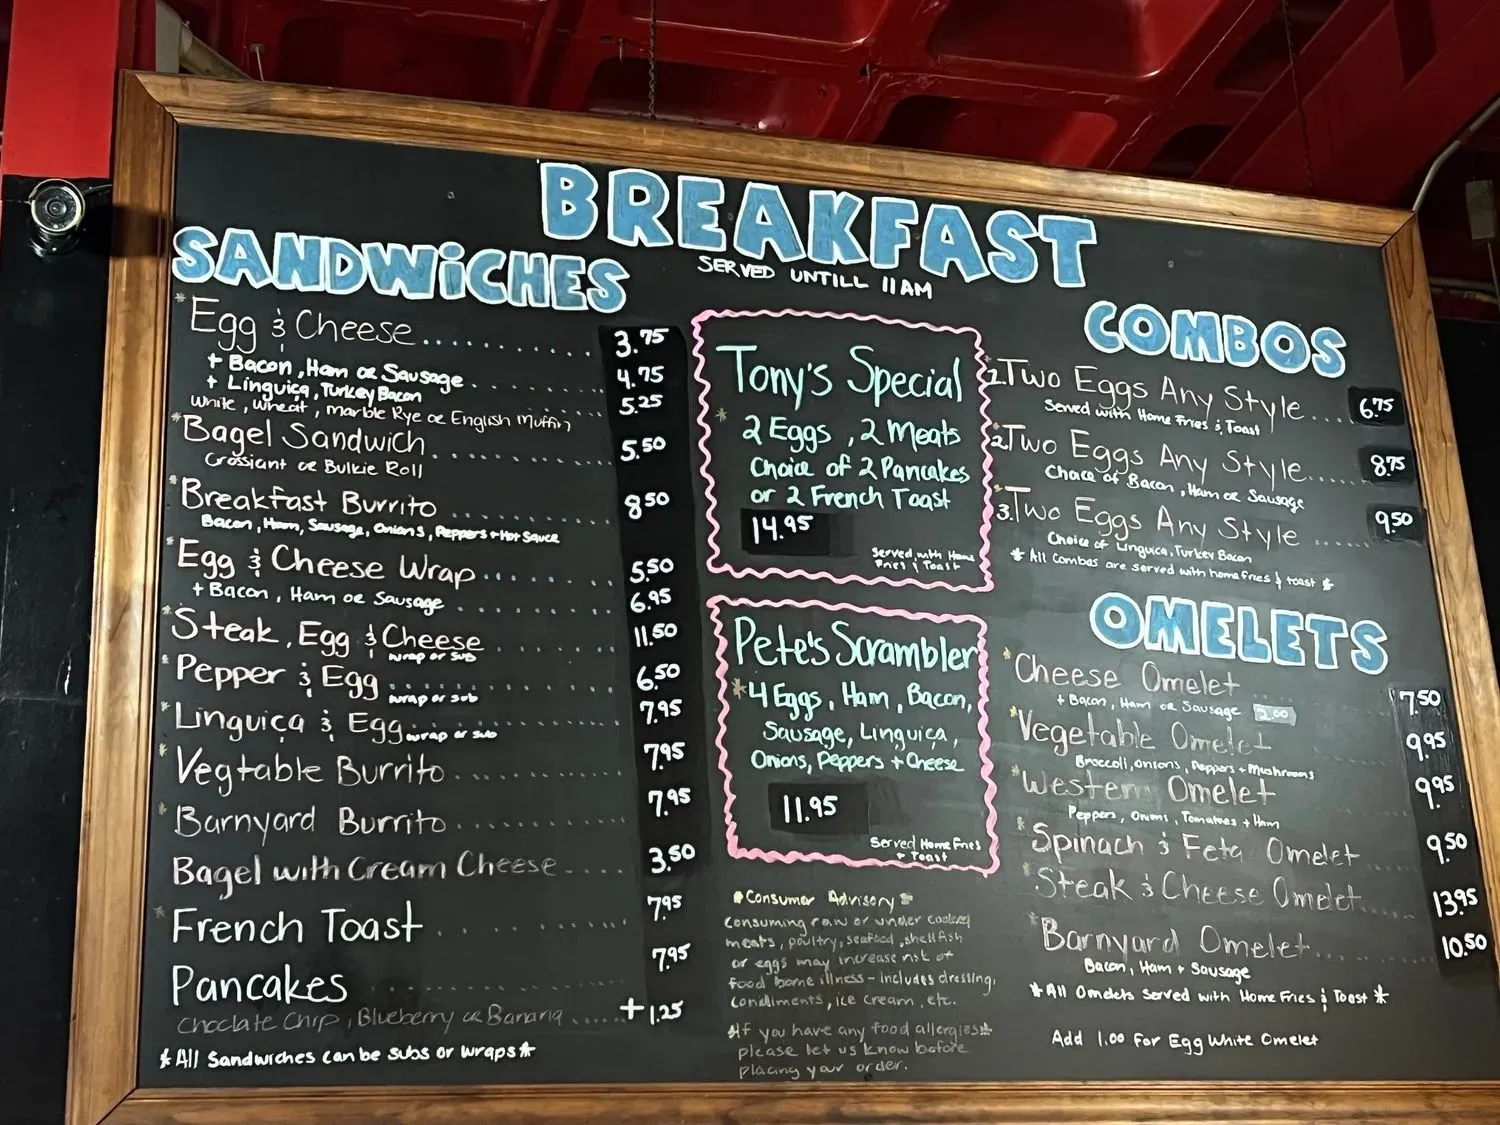 BREAKFAST
SERVED UNTILL 11AM
SANDWiCHES
*Egg & Cheese.......... 3.75
+ Bacon, Ham or Sausage.......... 4.75
+ Linguiça, Turkey Bacon.......... 5.25
White, Wheat, marble Rye or English Muffin
*Bagel Sandwich.......... 5.50
Crossiant or Bulkie Roll
*Breakfast Burrito.......... 8.50
Bacon, Ham, Sausage, Onions, Peppers + Hot Sauce
*Egg & Cheese Wrap.......... 5.50
+ Bacon, Ham or Sausage.......... 6.95
*Steak, Egg & Cheese.......... 11.50
wrap or sub
*Pepper & Egg.......... 6.50
wrap or sub
*Linguiça & Egg.......... 7.95
wrap or sub
*Vegtable Burrito.......... 7.95
*Barnyard Burrito.......... 7.95
Bagel with Cream Cheese.... 3.50
*French Toast.......... 7.95
Pancakes.......... 7.95
Choclate Chip, Blueberry or Banana..... +1.25
*All Sandwiches can be subs or wraps*
Tony's Special
*2 Eggs, 2 Meats
Choice of 2 Pancakes
or 2 French Toast
14.95
Served with Home
Fries & Toast
Pete's Scrambler
*4 Eggs, Ham, Bacon,
Sausage, Linguiça,
Onions, Peppers + Cheese
11.95
Served Home Fries
+ Toast
*Consumer Advisory*
Consuming raw or under cooked
meats, poultry, seafood, shellfish
or eggs may increase risk of
food borne illness - includes dressing,
condiments, ice cream, etc.
*If you have any food allergies*
please let us know before
placing your order.
COMBOS
1.Two Eggs Any Style.... 6.75
Served with Home Fries & Toast
2.Two Eggs Any Style...... 8.75
Choice of Bacon, Ham or Sausage
3.Two Eggs Any Style...... 9.50
Choice of Linguica, Turkey Bacon
*All Combos are served with home fries & toast*
OMELETS
*Cheese Omelet 7.50
+ Bacon, Ham or Sausage 2.00
*Vegetable Omelet 9.95
Broccoli, onions, Peppers + Mushrooms
*Western Omelet 9.95
Peppers, Onions, Tomatoes + Ham
*Spinach & Feta Omelet 9.50
*Steak & Cheese Omelet.... 13.95
*Barnyard Omelet.......... 10.50
Bacon, Ham + Sausage
*All Omelets Served with Home Fries & Toast*
Add 1.00 For Egg White Omelet